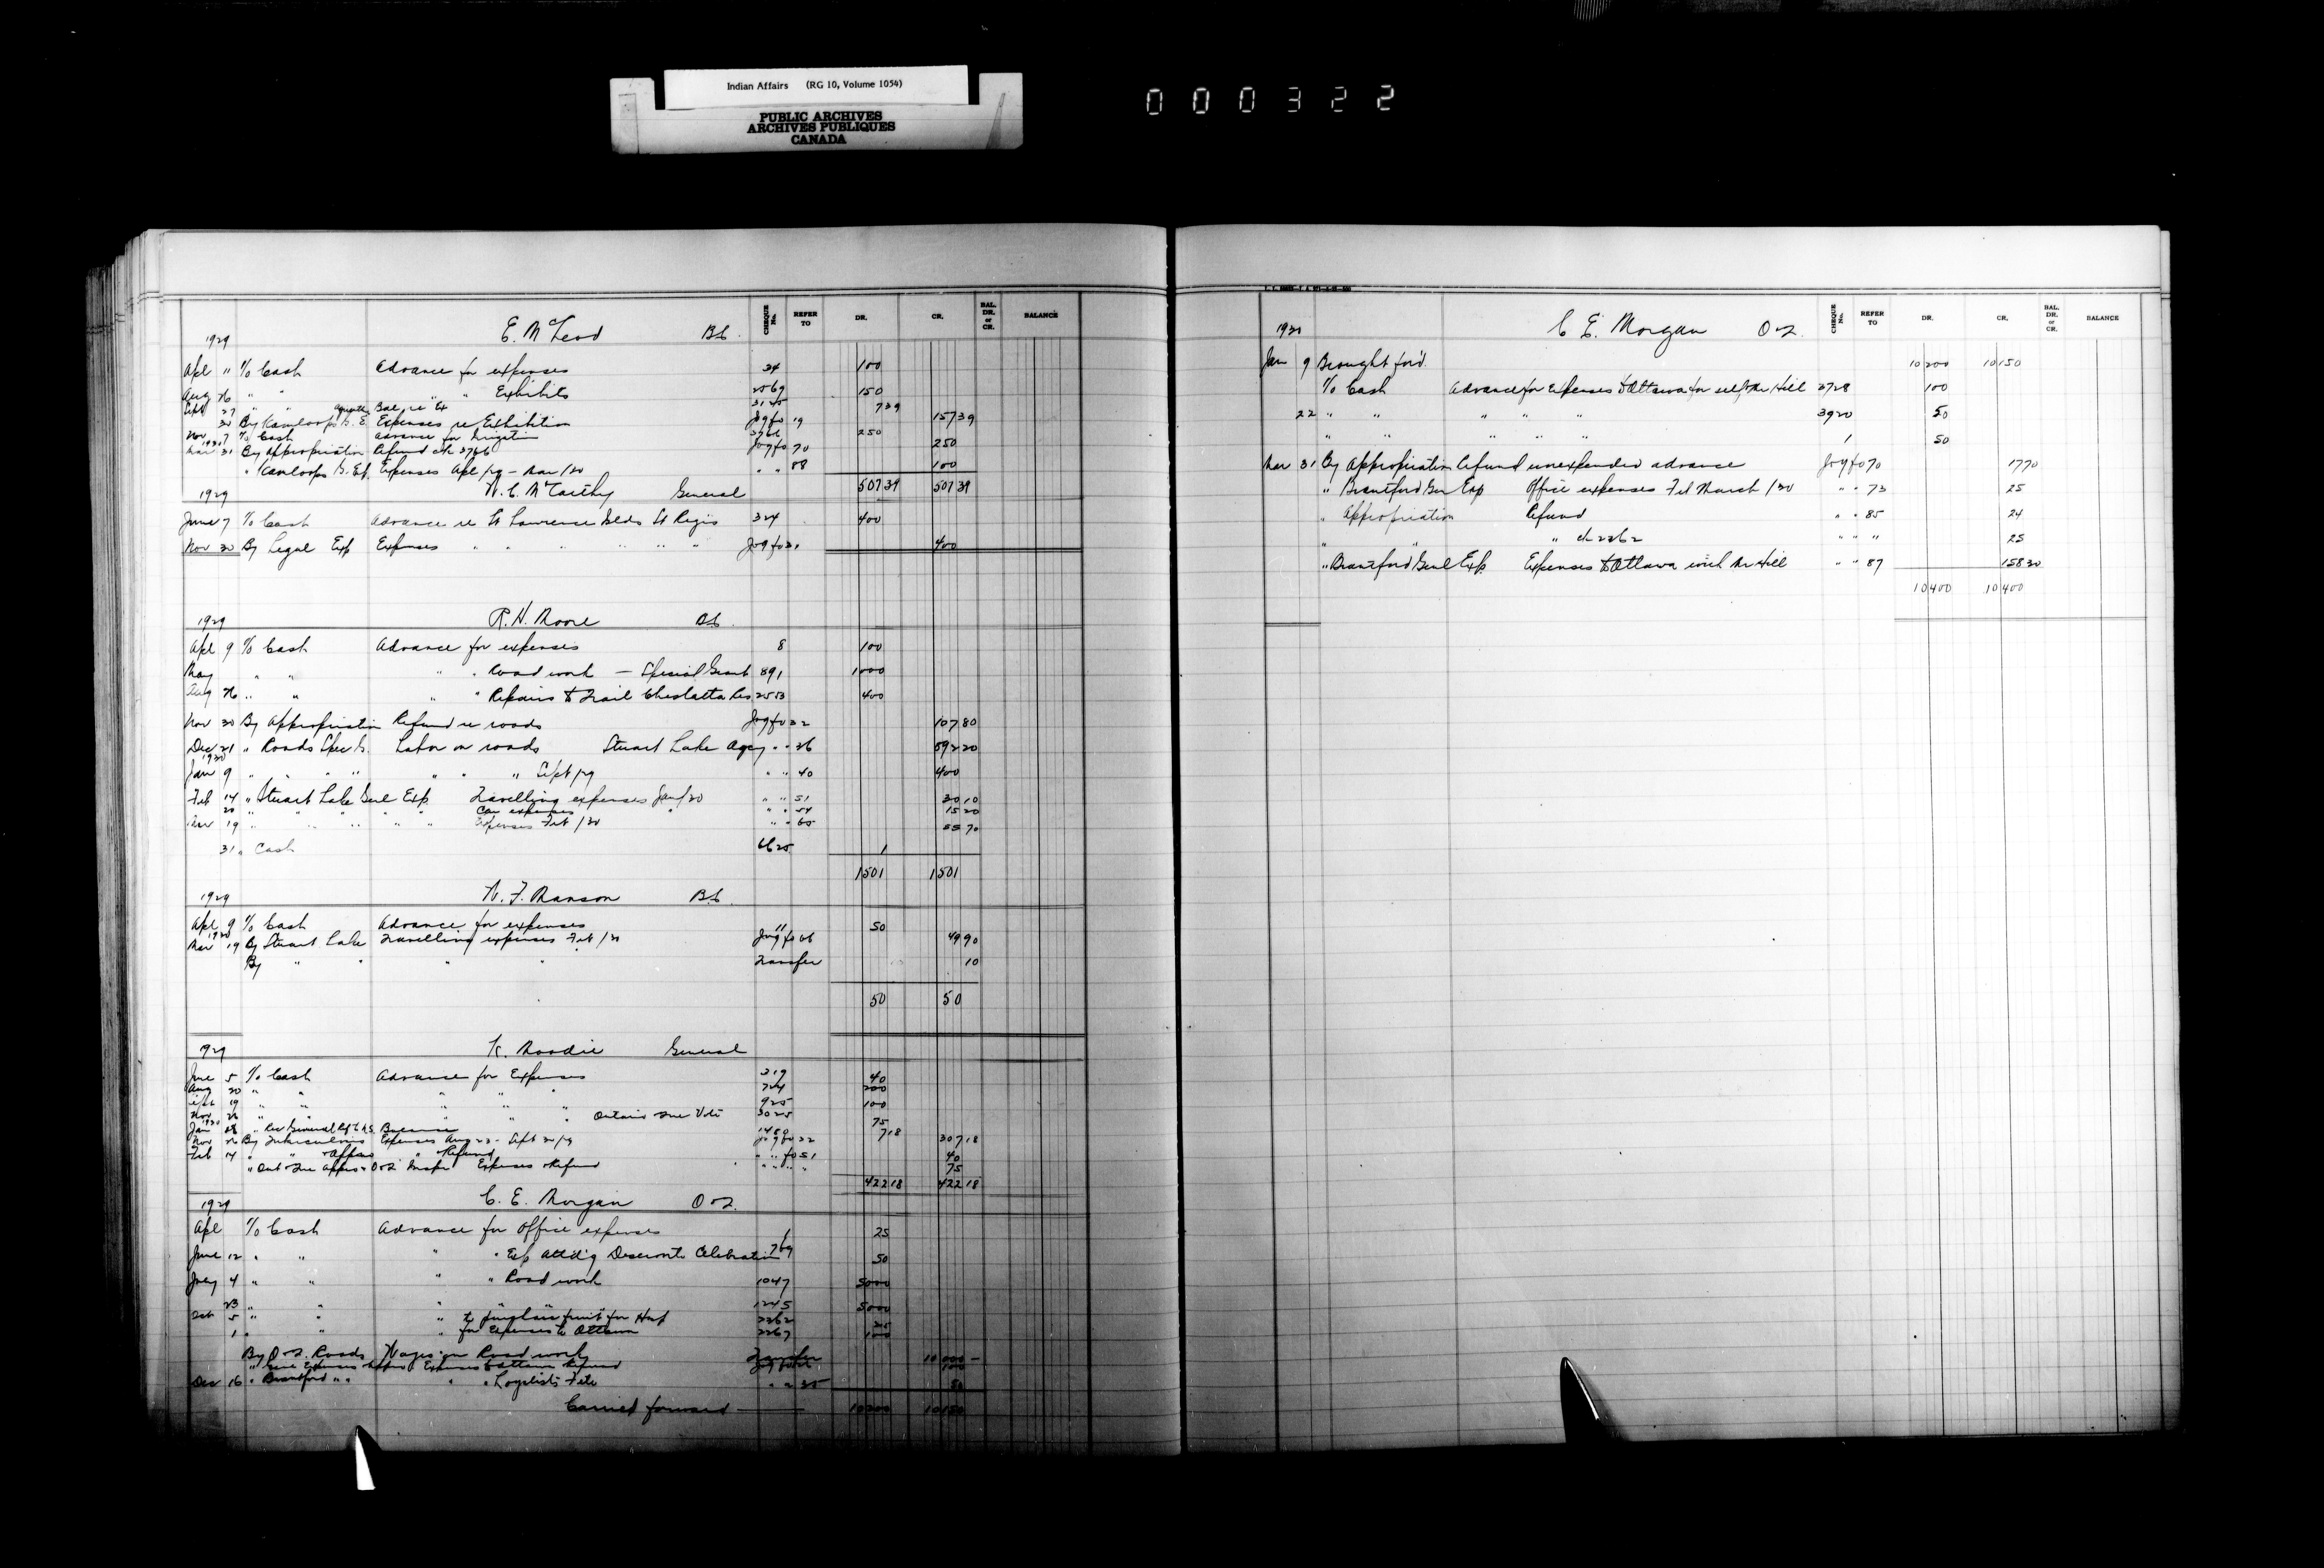 Indian Affairs (RG 10, Volume 1054)
PUBLIC ARCHIVES
ARCHIVES PUBLIQUES
CANADA
000322
CHEQUE No. REFER TO DR. CR. BAL. DR. or CR. BALANCE
1929 E. McLeod B.C.
Apl 11 To Cash Advance for expenses 34 100
Aug 26 " " " " Exhibits 2569 150
Sept 27 " " Bal. re Ex 3145 7 39
30 By Kamloops G. E. Expenses re Exhibition Jog fo 19 157 39
Nov 7 To Cash Advance for Irrigation 3766 250
1930 Mar 31 By Appropriation Refund ch 3766 Jog fo 70 250
" Kamloops G. Ex. Expenses Apl/29 - Mar/30 " " 88 100
507 39 507 39
1929 W. C. McCarthy General
June 7 To Cash Advance re St Lawrence Islds St Regis 324 400
Nov 30 By Legal Exp Expenses " " " " " " Jog fo 31 400
1929 R. H. Moore B.C.
Apl 9 To Cash Advance for expenses 8 100
May " " " " Road work — Special Grant 891 1000
Aug 26 " " " " Repairs to Trail Cheslatta Res 2553 400
Nov 30 By Appropriation Refund re roads Jog fo 32 107 80
Dec 21 " Roads Spec G. Labor on roads Stuart Lake Agcy " " 36 892 20
1930
Jan 9 " " " " " " " Sept/29 " " 40 400
Feb 14 " Stuart Lake Genl Exp. Travelling expenses Jan/30 " " 51 30 10
20 " " " " " Car expenses " " " 54 15 20
Mar 19 " " " " " Expenses Feb/30 " " 65 55 70
31 " Cash 6625 1
1501 1501
1929 W. F. Manson B.C.
Apl 9 To Cash Advance for expenses 11 50
1930
Mar 19 By Stuart Lake Travelling expenses Feb/30 Jog fo 66 49 90
By " " " " Transfer 10
50 50
1929 K. Moodie General
June 5 To Cash Advance for Expenses 319 40
Aug 20 " " " " " 724 200
Sept 19 " " " " " 925 100
Nov 26 " " " " " Ontario 3025 75
1930
Jan 28 " Rec General Balance 1480 7 18
Nov 26 By Tuberculosis Expenses Aug 22 - Sept 30/29 Jog fo 22 307 18
Feb 14 " " " Refund " " fo 51 40
" Expenses Refund " " " " 75
422 18 422 18
1929 C. E. Morgan O & Q.
Apl To Cash Advance for Office expenses 1 25
June 12 " " " " Exp. attd'g Deseronto Celebration 769 50
July 4 " " " " Road work 1047 5000
23 " " " " " 1245 5000
Oct 5 " " " to fruit for 2262 25
1 " " " for Expenses to Ottawa 2267 100
By O & Q. Roads Wages on Road work Transfer 10 000 —
" Genl Expenses Expenses to Ottawa Refund 100
Dec 16 " Brantford " " " " Loyalists Fete " " 35 50
Carried forward 10200 10150
CHEQUE No. REFER TO DR. CR. BAL. DR. or CR. BALANCE
1930 C. E. Morgan O & Q.
Jan 9 Brought for'd. 10200 10150
To Cash Advance for Expenses to Ottawa for self & Mr Hill 3728 100
22 " " " " " 3920 50
" " " " " 1 50
Mar 31 By Appropriation Refund unexpended advance Jog fo 70 17 70
" Brantford Gen Exp Office expenses Feb March/30 " " 73 25
" Appropriation Refund " " 85 24
" " " ch 2262 " " " 25
" Brantford Genl Exp. Expenses to Ottawa with Mr Hill " " 87 158 30
10400 10400